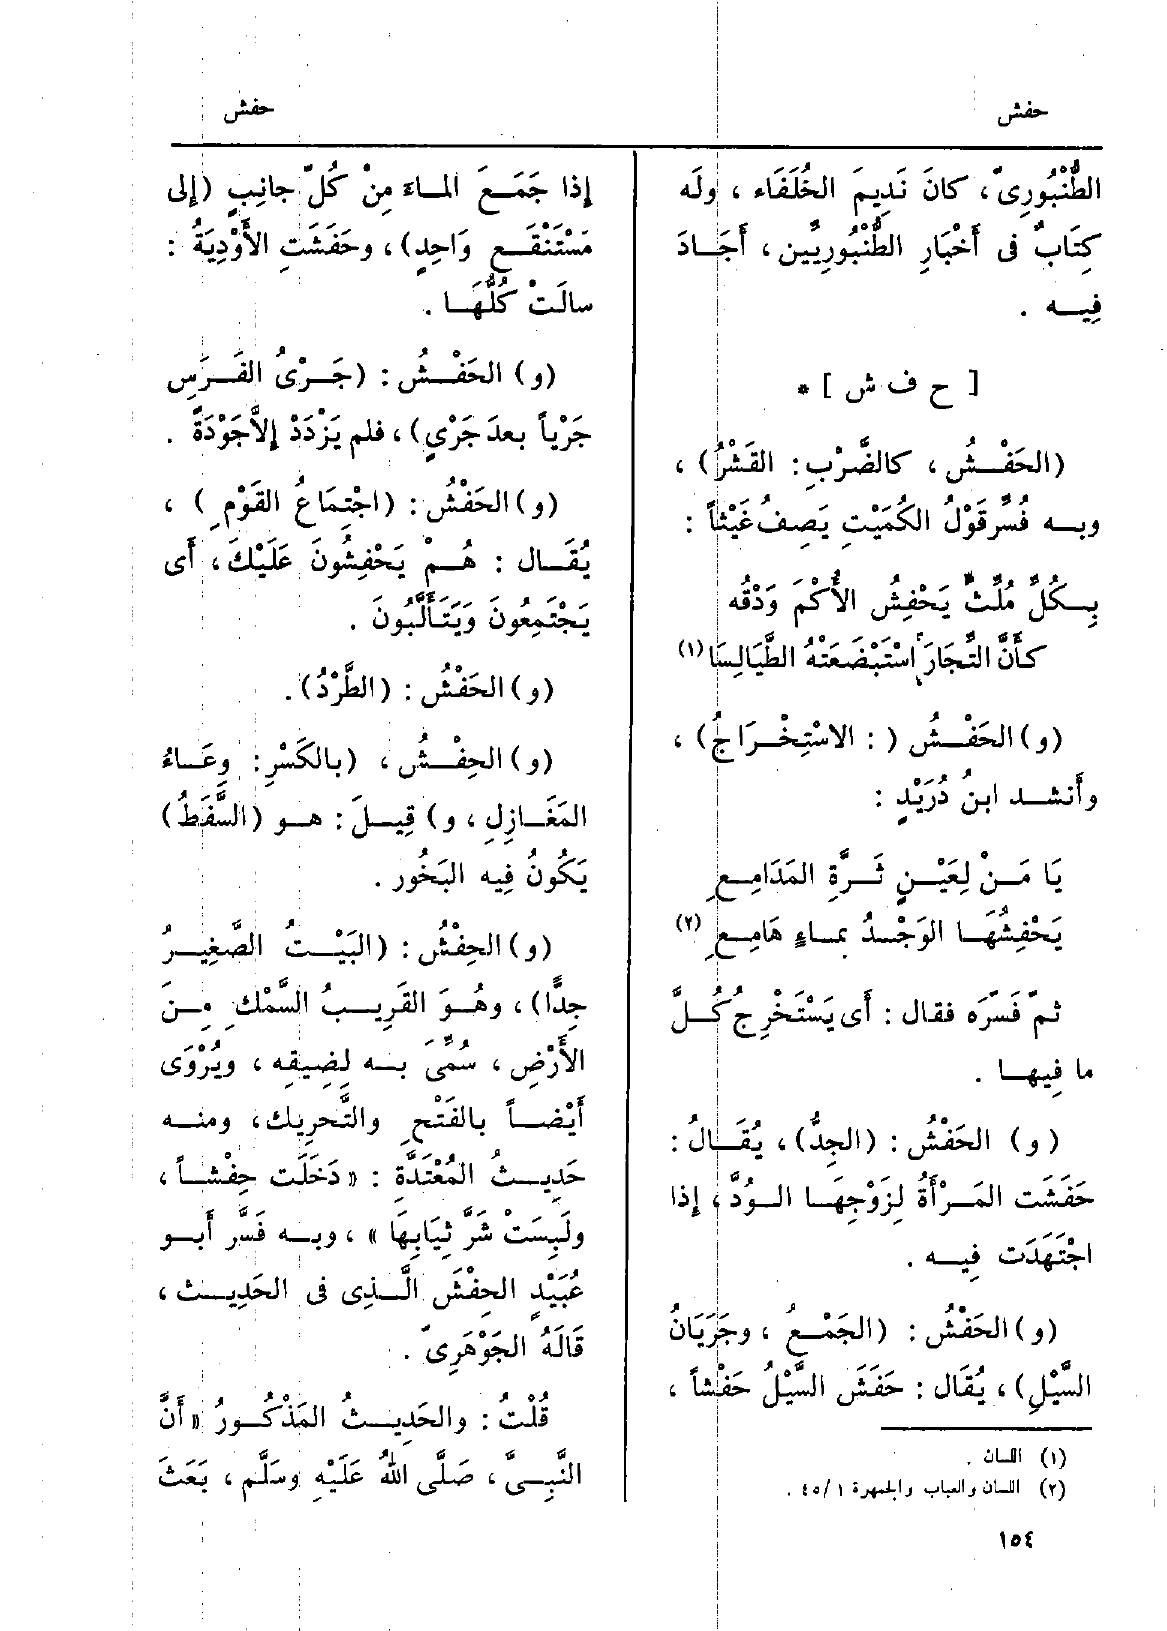 حفش
حفش
الطُّنْبُورِىّ، كانَ نَدِيمَ الخُلَفَاء ، ولَه
كِتَابٌ فى أَخْبَارِ الطُّنْبُورِيِّين ، أَجَادَ
فِيه .
[ ح ف ش ] *
(الحَفْشُ ، كالضَّرْبِ : القَشْرُ) ،
وبه فُسِّرقَوْلُ الكُمَيْتِ يَصِفُ غَيْثاً :
بِكُلِّ مُلِثٍّ يَحْفِشُ الأُكْمَ وَدْقُه
كأَنَّ التِّجَارَ اسْتَبْضَعَتْهُ الطَّيَالِسَا (١)
(و) الحَفْشُ ( : الاسْتِخْرَاجُ) ،
وأَنشد ابنُ دُرَيْدٍ :
يَا مَنْ لِعَيْنٍ ثَرَّةِ المَدَامِعِ
يَحْفِشُهَا الوَجْدُ بماءٍ هَامِعِ (٢)
ثمّ فَسَّرَه فقال : أَى يَسْتَخْرِجُ كُلَّ
ما فِيها .
(و) الحَفْشُ : (الجِدُّ) ، يُقَالُ :
حَفَشَت المَرْأَةُ لِزَوْجِهَا الوُدَّ ، إذا
اجْتَهَدَت فِيه .
(و) الحَفْشُ : (الجَمْعُ ، وجَرَيَانُ
السَّيْلِ) ، يُقَال : حَفَشَ السَّيْلُ حَفْشاً ،
(١) اللسان .
(٢) اللسان والعباب والجمهرة ١ /٤٥ .
١٥٤
إذا جَمَعَ الماءَ مِنْ كُلّ جانِبٍ (إلى
مَسْتَنْقَعٍ وَاحِدٍ) ، وحَفَشَتِ الأَوْدِيَةُ :
سالَتْ كُلُّهَا .
(و) الحَفْشُ : (جَرْىُ الفَرَسِ
جَرْياً بعدَ جَرْيٍ) ، فلم يَزْدَدْ إلاَّجَوْدَةً .
(و) الحَفْشُ : (اجْتِمَاعُ القَوْمِ) ،
يُقَال : هُمْ يَحْفِشُونَ عَلَيْكَ ، أَى
يَجْتَمِعُونَ وَيَتَأَلَّبُونَ .
(و) الحَفْشُ : (الطَّرْدُ) .
(و) الحِفْشُ ، (بالكَسْرِ : وِعَاءُ
المَغَازِلِ ، و) قِيلَ : هو (السَّفَطُ)
يَكُونُ فِيه البَخُور .
(و) الحِفْشُ : (البَيْتُ الصَّغِيرُ
جِدًّا) ، وهُوَ القَرِيبُ السَّمْكِ مِنَ
الأَرْضِ ، سُمِّىَ به لِضِيقِه ، ويُرْوَى
أَيْضاً بالفَتْحِ والتَّحْرِيك ، ومنه
حَدِيثُ المُعْتَدَّةِ : « دَخَلَت حِفْشاً ،
ولَبِسَتْ شَرَّ ثِيَابِهَا » ، وبه فَسَّر أَبو
عُبَيْدٍ الحِفْشَ الَّذِى فى الحَدِيث ،
قَالَهُ الجَوْهَرِىّ .
قُلْتُ : والحَدِيثُ المَذْكُورُ « أَنَّ
النَّبِىَّ ، صَلَّى اللهُ عَلَيْهِ وسَلَّم ، بَعَثَ